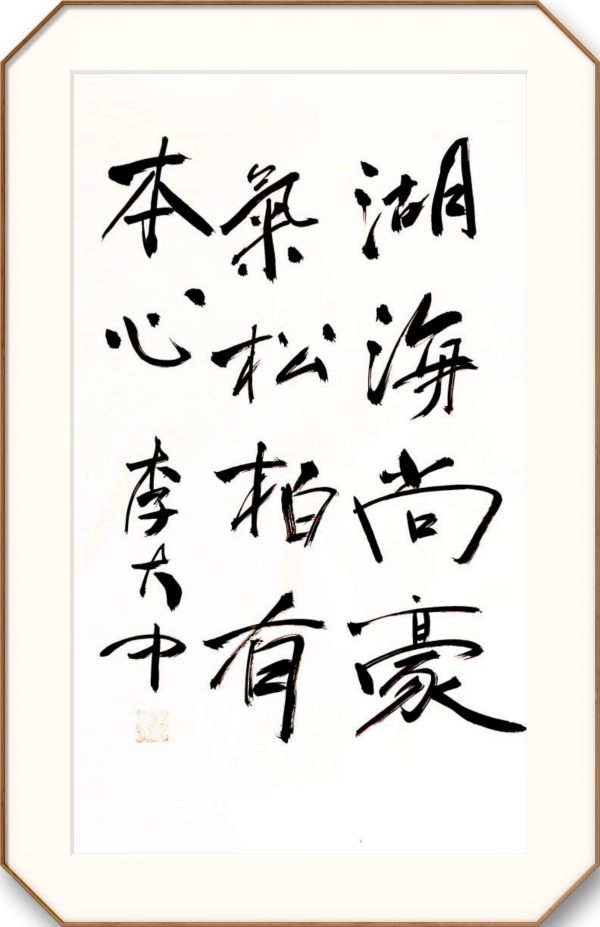 湖海尚豪
氣松柏有
本心 李大中